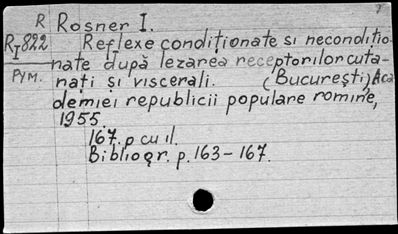 R Rosner I.
R I 822 Reflexe condiționate si neconditio-
nate după lezarea receptorilor cuta-
Рум. nați si viscerali. (București), Aca
demiei republicii populare romîne,
1955.
167. p cu il.
Bibliogr. p. 163-167.